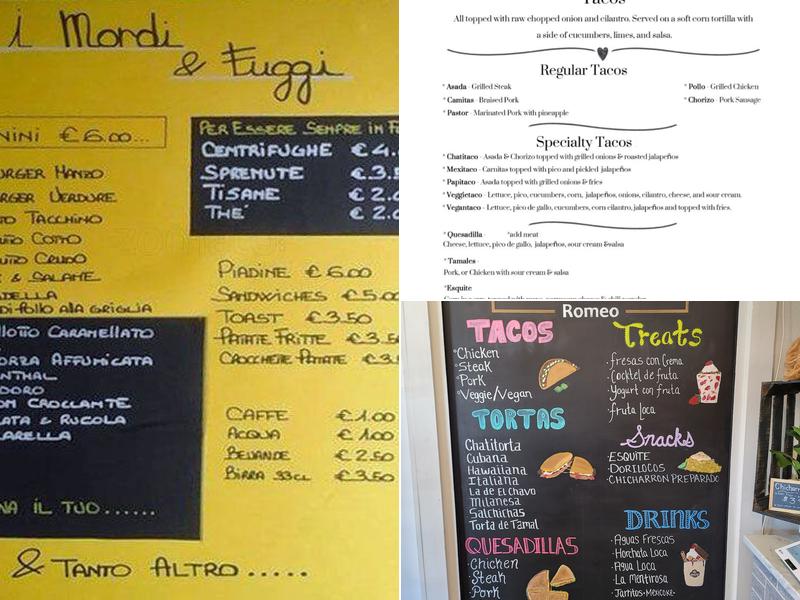 i Mordi
& Fuggi
NINI € 6.00...
URGER MANZO
RGER VERDURE
TO TACCHINO
UTTO COTTO
UTTO CRUDO
E & SALAME
ADELLA
DI POLLO ALLA GRIGLIA
PER ESSERE SEMPRE IN F
CENTRIFUGHE € 4.
SPREMUTE € 3.5
TISANE € 2.0
THE' € 2.0
PIADINE € 6.00
SANDWICHES € 5.00
TOAST € 3.50
PATATE FRITTE € 3.5
CROCCHETTE PATATE € 3.
LLOTTO CARAMELLATO
ORZA AFFUMICATA
NTHAL
DORO
ON CROCCANTE
ATA & RUCOLA
ARELLA
NA IL TUO......
CAFFE € 1.00
ACQUA € 1.00
BEVANDE € 2.50
BIRRA 33CL € 3.50
& TANTO ALTRO.....
Tacos
All topped with raw chopped onion and cilantro. Served on a soft corn tortilla with
a side of cucumbers, limes, and salsa.
Regular Tacos
* Asada - Grilled Steak
* Carnitas - Braised Pork
* Pastor - Marinated Pork with pineapple
* Pollo - Grilled Chicken
* Chorizo - Pork Sausage
Specialty Tacos
* Chatitaco - Asada & Chorizo topped with grilled onions & roasted jalapeños
* Mexitaco - Carnitas topped with pico and pickled jalapeños
* Papitaco - Asada topped with grilled onions & fries
* Veggietaco - Lettuce, pico, cucumbers, corn, jalapeños, onions, cilantro, cheese, and sour cream.
* Vegantaco - Lettuce, pico de gallo, cucumbers, corn cilantro, jalapeños and topped with fries.
* Quesadilla - *add meat
Cheese, lettuce, pico de gallo, jalapeños, sour cream &salsa
* Tamales -
Pork, or Chicken with sour cream & salsa
*Esquite
Romeo
TACOS
*Chicken
*Steak
*Pork
*Veggie/Vegan
TORTAS
Chatitorta
Cubana
Hawaiiana
Italiana
La de El Chavo
Milanesa
Salchichas
Torta de Tamal
QUESADILLAS
·Chicken
·Steak
·Pork
Treats
·fresas con Crema
·Cocktel de fruta
·Yogurt con fruta
·fruta Loca
Snacks
·ESQUITE
·DORILOCOS
·CHICHARRON PREPARADO
DRINKS
·Aguas Frescas
·Horchata Loca
·Agua Loca
·La Mentirosa
·Jarritos·Mexicoke·